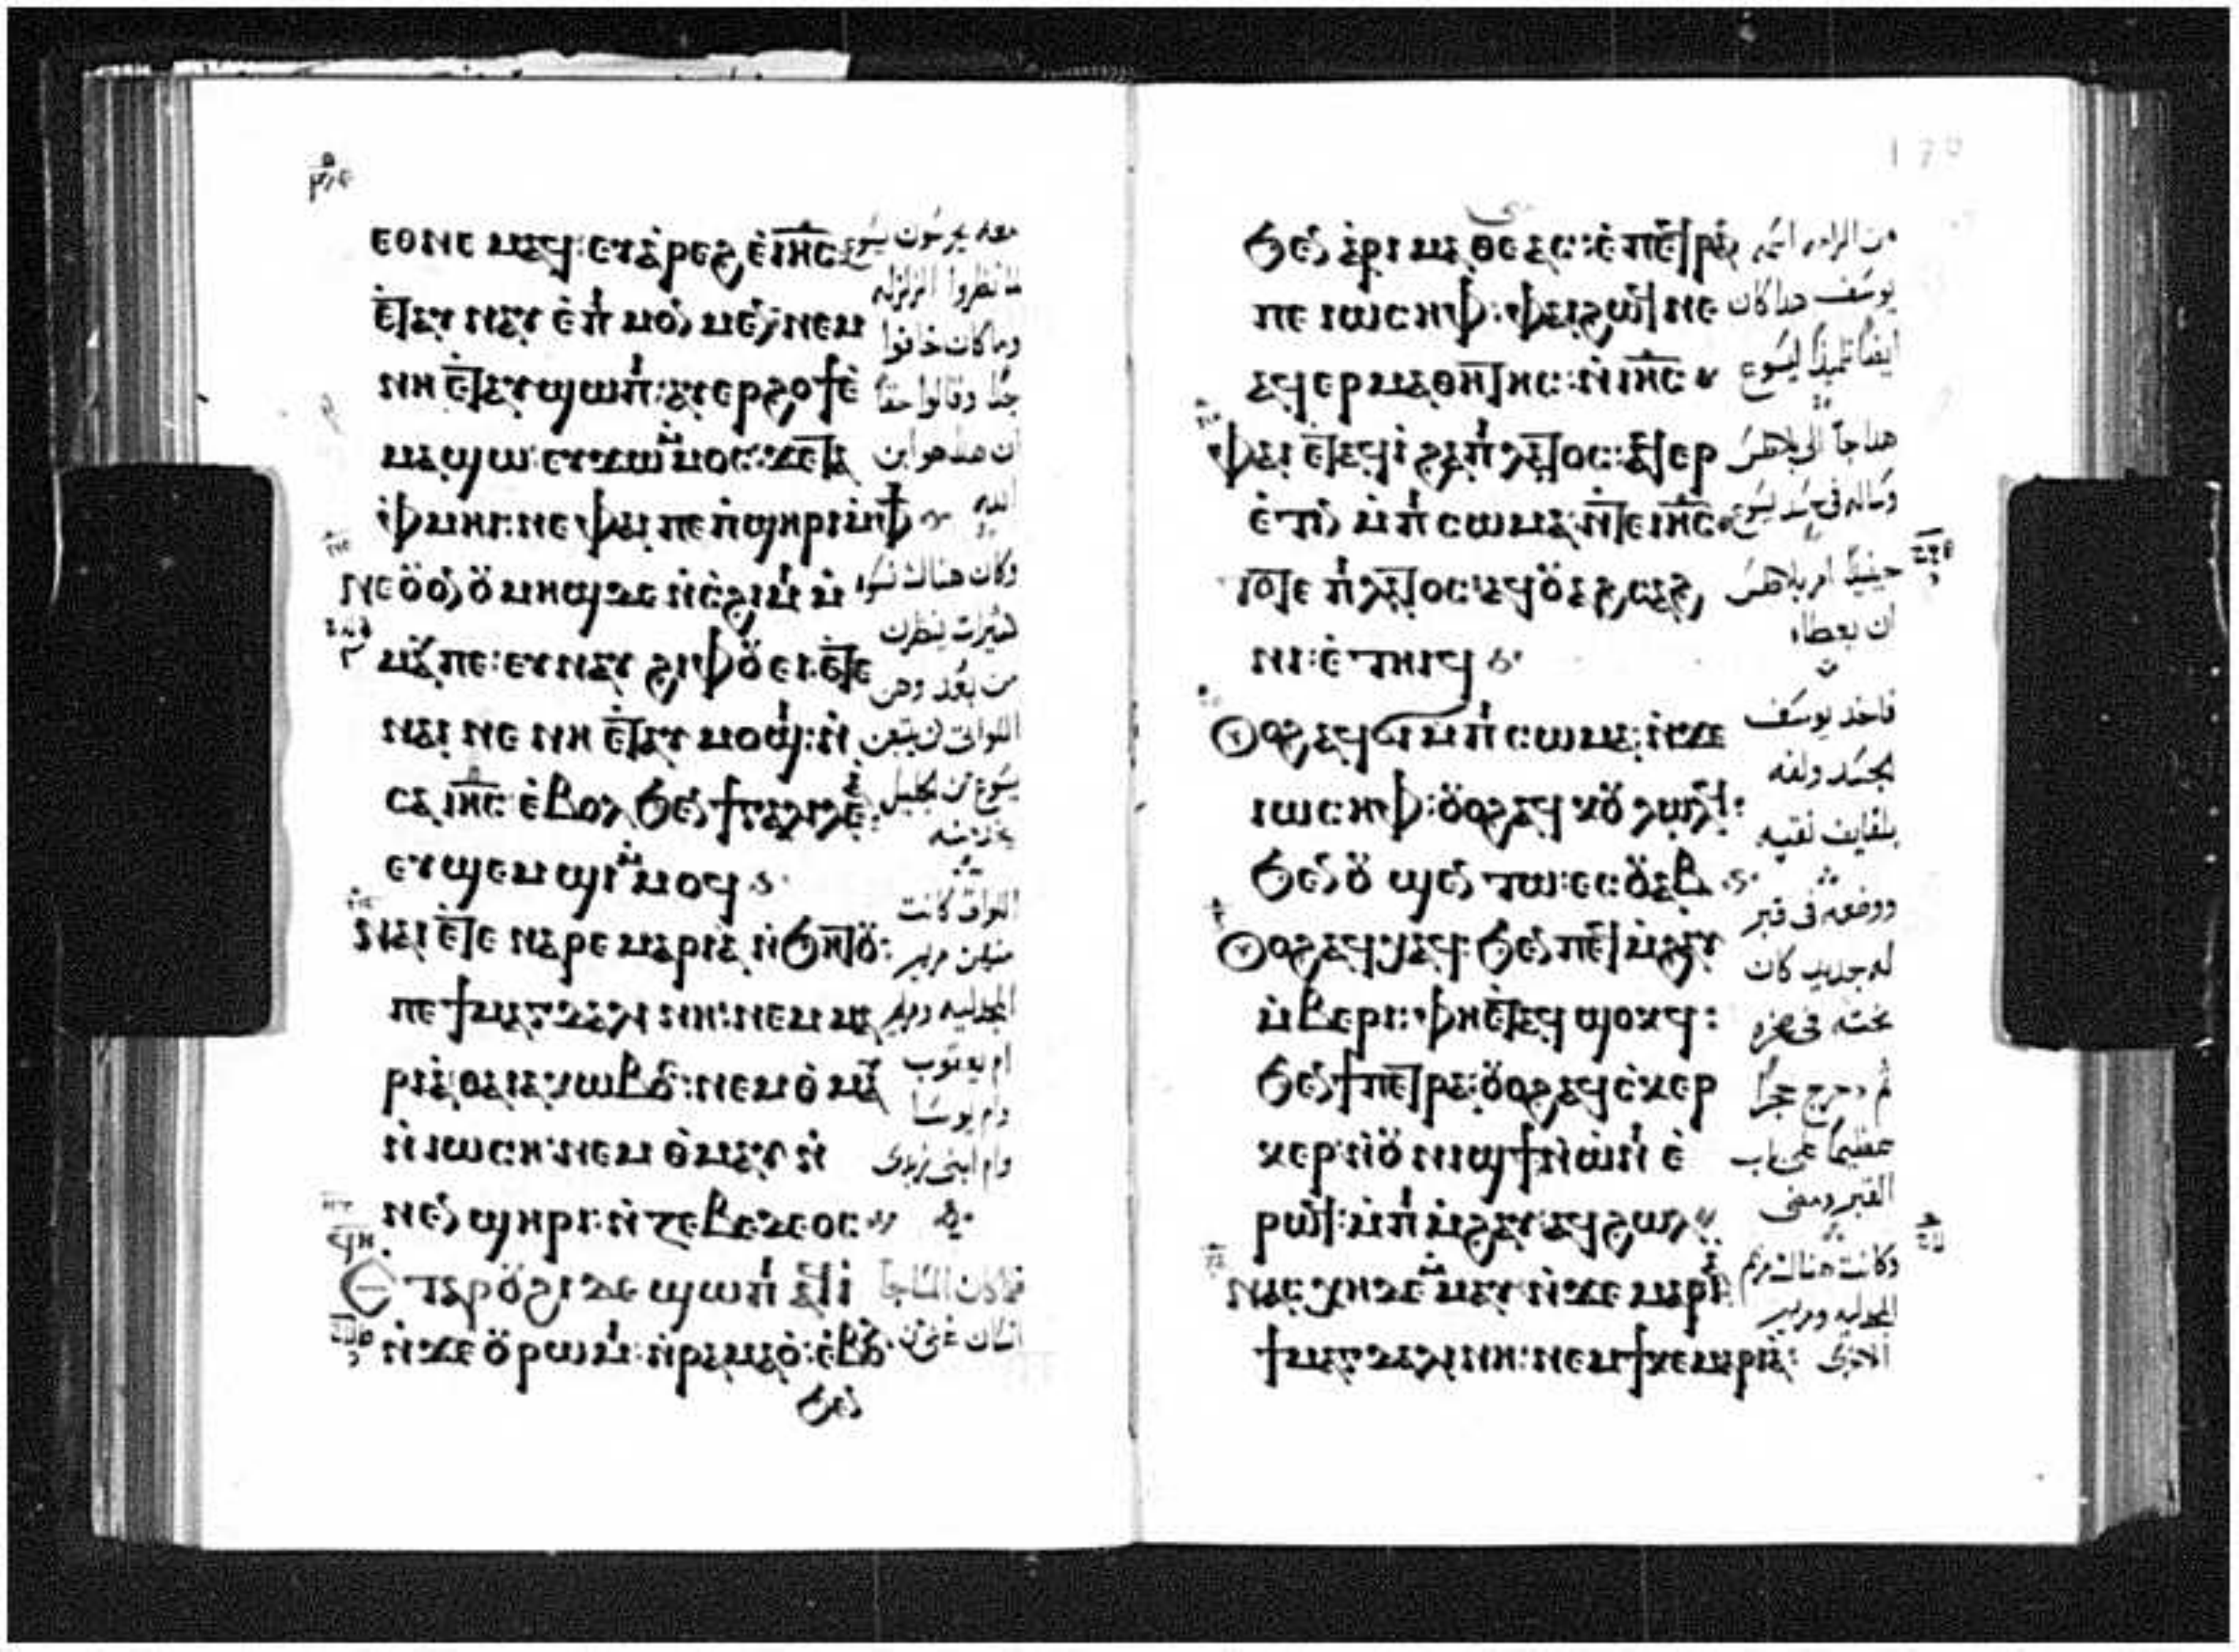 ⲉⲑⲛⲉⲙⲁϥ: ⲉⲩⲁ̀ⲣⲉϩ ⲉ̀ⲓⲏ̅ⲥ̅
ⲉ̀ⲧⲁⲩⲛⲁⲩ ⲉ̀ⲡⲙⲟⲛⲙⲉⲛ ⲛⲉⲙ
ⲛⲏ ⲉ̀ⲧⲁⲩϣⲱⲡⲓ: ⲁⲩⲉⲣϩⲟϯ ⲉ̀
ⲙⲁϣⲱ ⲉⲩϫⲱ ⲙ̀ⲙⲟⲥ: ϫⲉ ⲧⲁ
ⲫⲙⲏⲓ: ⲛⲉ ⲫⲁⲓ ⲡⲉ ⲡ̀ϣⲏⲣⲓ ⲙ̀ⲫϯ
ⲛⲉ ⲟ̈ⲟⲛ ⲟ̈ⲙⲏϣ ⲇⲉ ⲛ̀ⲥ̀ϩⲓⲙⲓ ⲙ̀
ⲙⲁⲩ ⲡⲉ: ⲉⲩⲛⲁⲩ ϩⲓⲫⲟ̈ⲉⲓ: ⲉ̀ⲧⲉ
ⲛⲁⲓ ⲛⲉ ⲛⲏ ⲉ̀ⲧⲁⲩⲙⲟϣⲓ: ⲛ̀
ⲥⲁ ⲓⲏ̅ⲥ̅ ⲉ̀ⲃⲟⲗ ϧⲉⲛ ϯⲅⲁⲗⲓⲗⲉⲁ̀:
ⲉⲩϣⲉⲙϣⲓ ⲙ̀ⲙⲟϥ
ⲛⲁⲓ ⲉ̀ⲧⲉ ⲛⲁⲣⲉ ⲙⲁⲣⲓⲁ̀ ⲛ̀ϧⲏⲧⲟ̈:
ⲡⲉ ϯⲙⲁⲅⲇⲁⲗⲓⲛⲏ: ⲛⲉⲙ ⲙⲁ
ⲣⲓⲁ̀ ⲑⲁ ⲓⲁⲕⲱⲃⲟⲥ: ⲛⲉⲙ ⲑ̀ⲙⲁⲩ
ⲛ̀ⲓⲱⲥⲏ: ⲛⲉⲙ ⲑ̀ⲙⲁⲩ ⲛ̀
ⲛⲉⲛϣⲏⲣⲓ: ⲛ̀ⲍⲉⲃⲉⲇⲉⲟⲥ
ⲉⲧⲁ ⲣⲟ̈ϩⲓ ⲇⲉ ϣⲱⲡⲓ ⲁϥⲓ̀
ⲛ̀ϫⲉ ⲟ̈ⲣⲱⲙⲓ: ⲛ̀ⲣⲁⲙⲁⲟ̀: ⲉ̀ⲃⲟⲗ
ϧⲉⲛ
معه يحرسون يسوع
لما نظروا الزلزله
وما كان خافوا
جدا وقالوا حقا
ان هذا هو ابن
الله
وكان هناك نسوه
كثيرات ينظرن
من بعد وهن
اللواتي تبعن
يسوع من الجليل
يخدمنه
اللواتي كانت
منهن مريم
المجدليه ومريم
ام يعقوب
وام يوسا
وام ابني زبدي
فلما كان المسا جا
انسان غني من
ϧⲉⲛ ⲁ̀ⲣⲓⲙⲁⲑⲉⲁⲥ: ⲉ̀ⲡⲉϥⲣⲁⲛ
ⲡⲉ ⲓⲱⲥⲏⲫ: ⲫⲁⲓ ϩⲱϥ ⲛⲉ
ⲁϥⲉⲣⲙⲁⲑⲏⲧⲏⲥ: ⲛ̀ⲓⲏ̅ⲥ̅
ⲫⲁⲓ ⲉ̀ⲧⲁϥⲓ̀ ϩⲁ ⲡⲓⲗⲁⲧⲟⲥ: ⲁϥⲉⲣ
ⲉ̀ⲧⲓⲛ ⲙ̀ⲡⲓⲥⲱⲙⲁ: ⲛ̀ⲧⲉ ⲓⲏ̅ⲥ̅
ⲧⲟⲧⲉ ⲡⲓⲗⲁⲧⲟⲥ: ⲁϥⲟ̈ⲁϩⲥⲁϩ
ⲛⲓ: ⲉ̀ⲧⲏⲓϥ
ⲟϩ ⲁϥϭⲓ ⲙ̀ⲡⲓⲥⲱⲙⲁ: ⲛ̀ϫⲉ
ⲓⲱⲥⲏⲫ: ⲟ̈ⲟϩ ⲁϥⲕⲟ̈ⲗⲱⲗϥ:
ϧⲉⲛ ⲟ̈ϣⲉⲛⲧⲱ: ⲉⲥⲟ̈ⲁⲃ
ⲟϩ ⲁϥⲭⲁϥ: ϧⲉⲛ ⲡⲉϥⲙ̀ϩⲁⲩ
ⲙ̀ⲃⲉⲣⲓ: ⲫⲏ ⲉ̀ⲧⲁϥϣⲟⲕϥ:
ϧⲉⲛ ϯⲡⲉⲧⲣⲁ: ⲟ̈ⲟϩ ⲁϥⲥ̀ⲕⲉⲣ
ⲕⲉⲣ ⲛ̀ⲟ̈ⲛⲓϣϯ ⲛ̀ⲱ̀ⲛⲓ ⲉ̀
ⲣⲱϥ: ⲙ̀ⲡⲓⲙ̀ϩⲁⲩ: ⲁϥϩⲱⲗ
ⲛⲁⲥⲭⲏ ⲇⲉ ⲙ̀ⲙⲁⲩ ⲛ̀ϫⲉ ⲙⲁⲣⲓⲁ̀
ϯⲙⲁⲅⲇⲁⲗⲓⲛⲏ: ⲛⲉⲙ ϯⲕⲉⲙⲁⲣⲓⲁ̀:
من الرامه اسمه
يوسف هذا كان
ايضا تلميذا ليسوع
هذا جا الي بيلاطس
وساله في جسد يسوع
حينيذ امر بيلاطس
ان يعطاه
فاخذ يوسف
الجسد ولفه
بلفايف نقيه
ووضعه في قبر
له جديد كان
نحته في صخره
ثم دحرج حجرا
عظيما علي باب
القبر ومضي
وكانت هناك مريم
المجدليه ومريم
الاخري